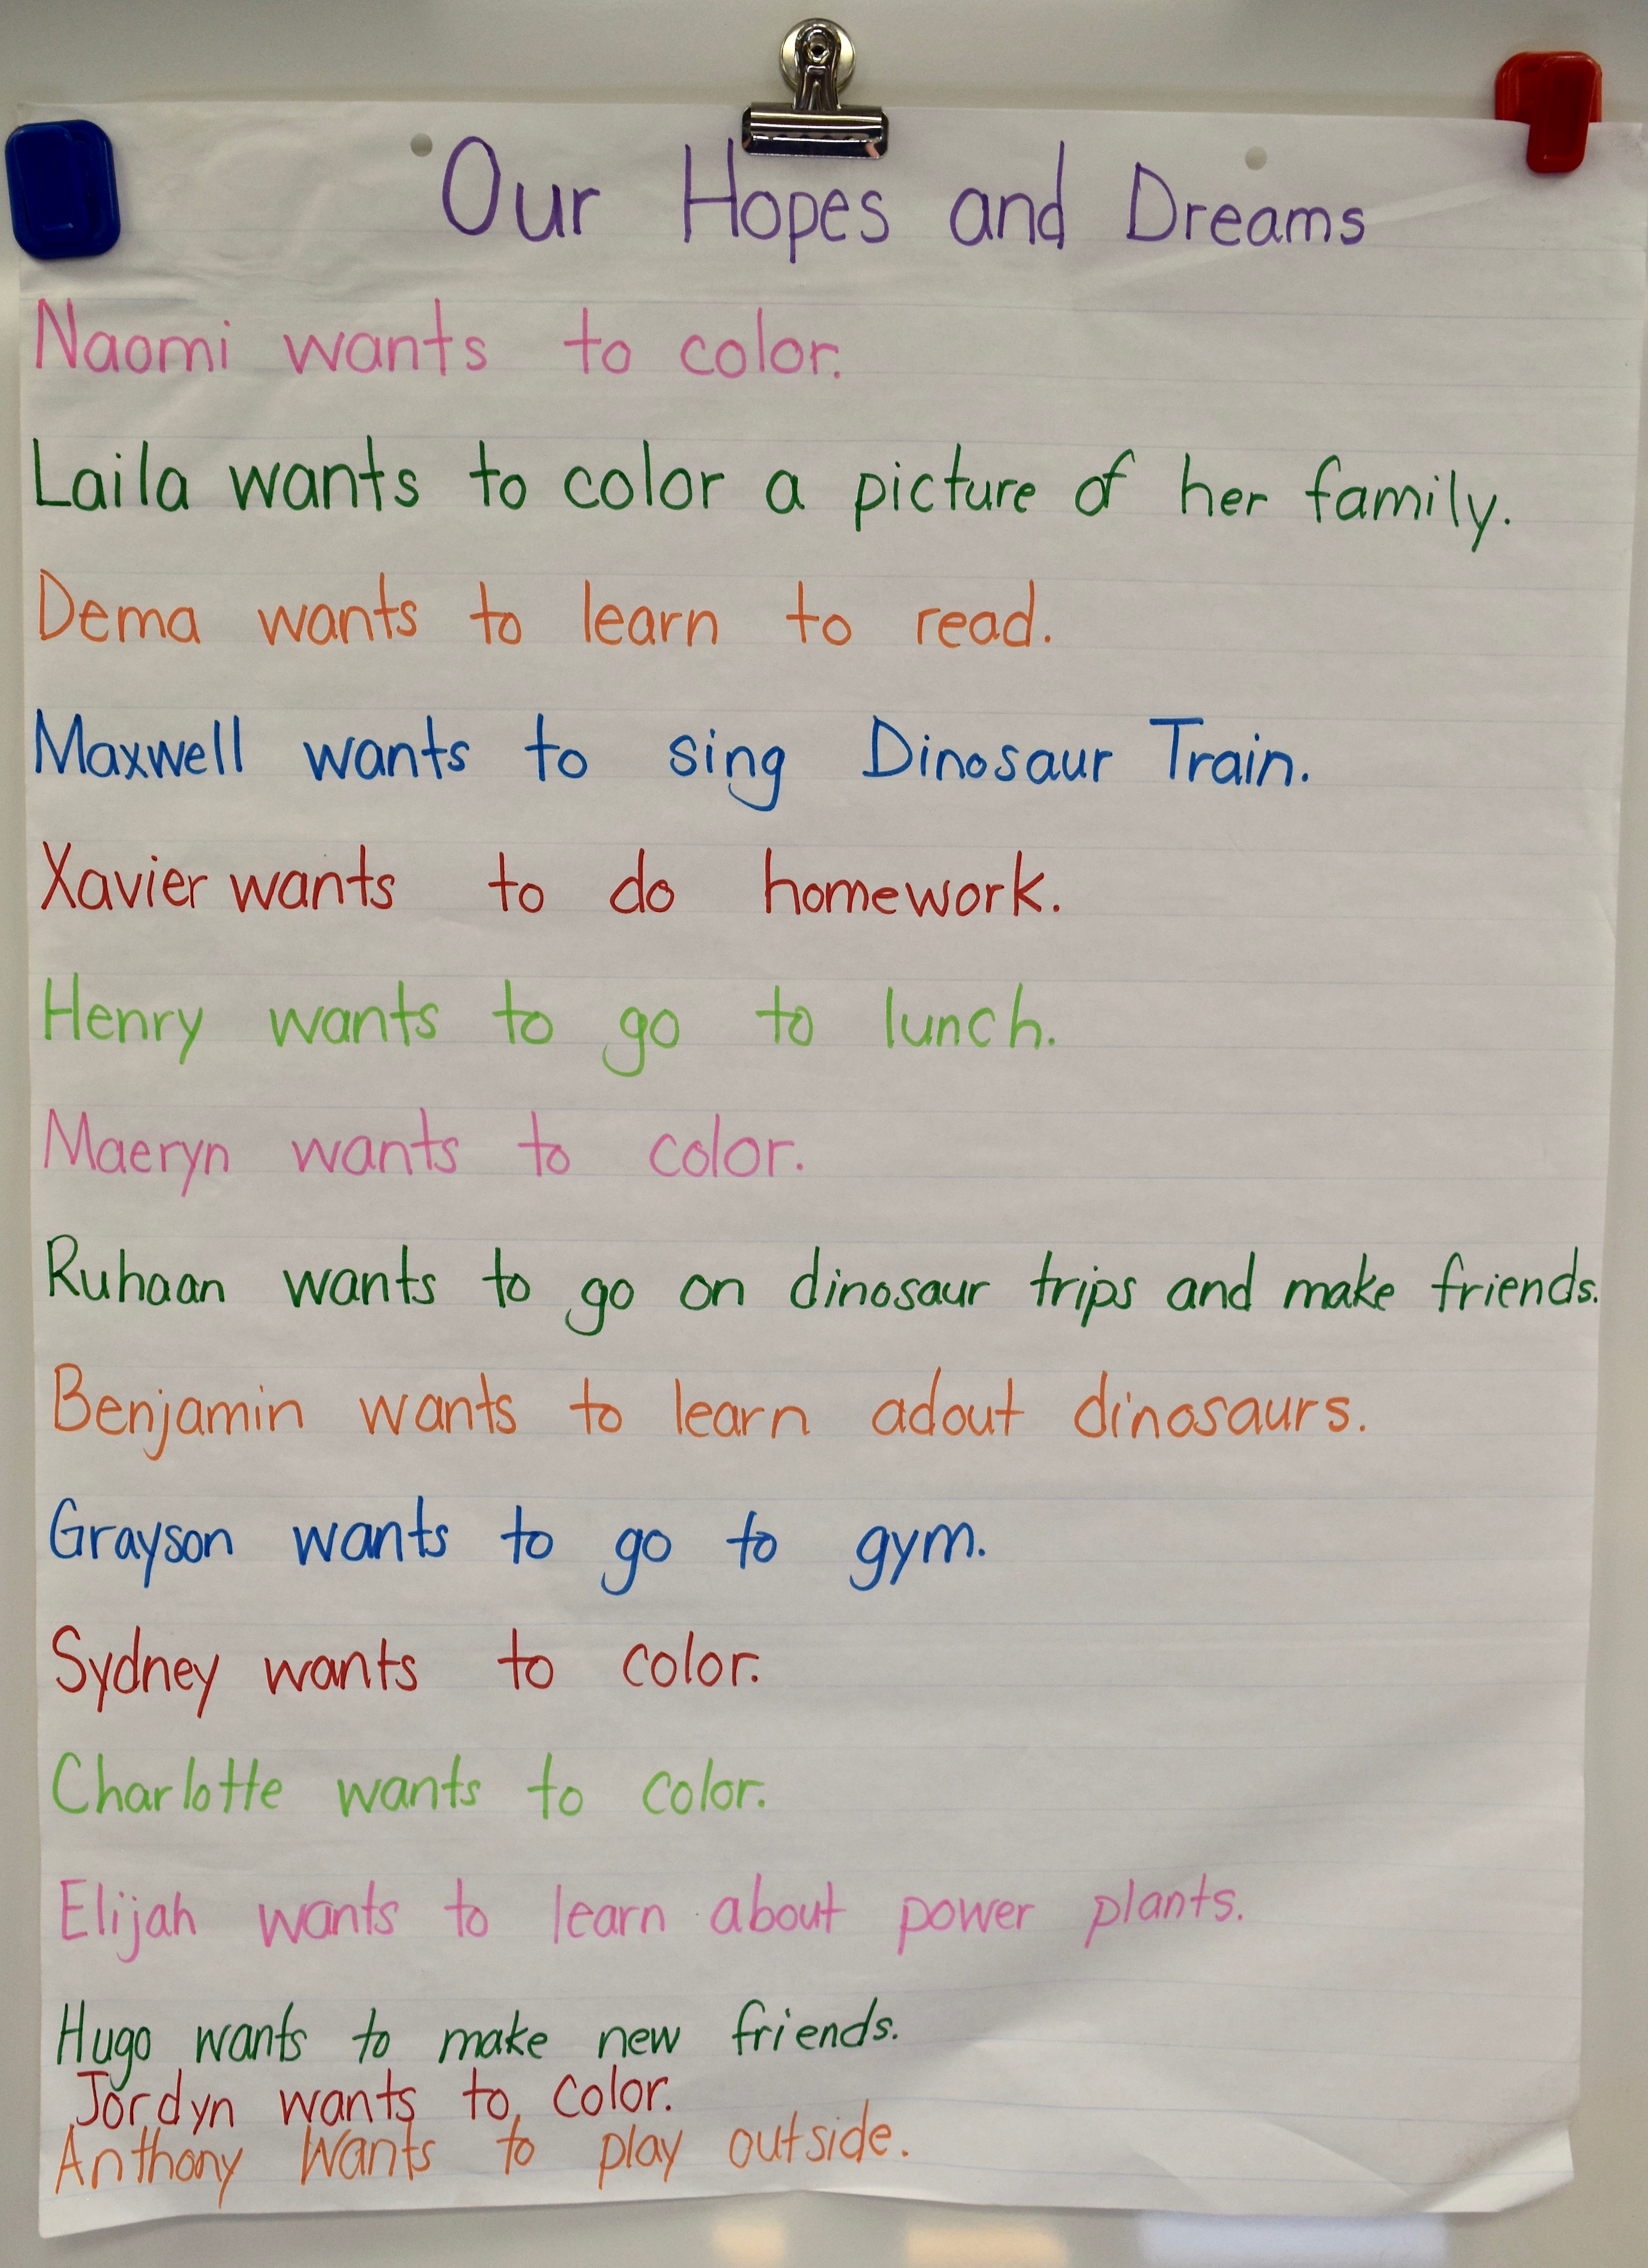 Our Hopes and Dreams
Naomi wants to color.
Laila wants to color a picture of her family.
Dema wants to learn to read.
Maxwell wants to sing Dinosaur Train.
Xavier wants to do homework.
Henry wants to go to lunch.
Maeryn wants to color.
Ruhaan wants to go on dinosaur trips and make friends.
Benjamin wants to learn adout dinosaurs.
Grayson wants to go to gym.
Sydney wants to color.
Charlotte wants to color.
Elijah wants to learn about power plants.
Hugo wants to make new friends.
Jordyn wants to color.
Anthony Wants to play outside.